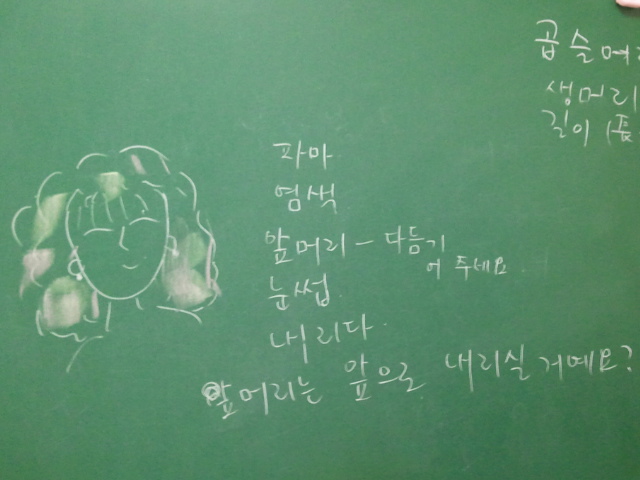 곱슬머리
생머리
길이 (長
파마
염색
앞머리 - 다듬기
어 주세요.
눈썹.
내리다.
앞머리는 앞으로 내리실 거예요?